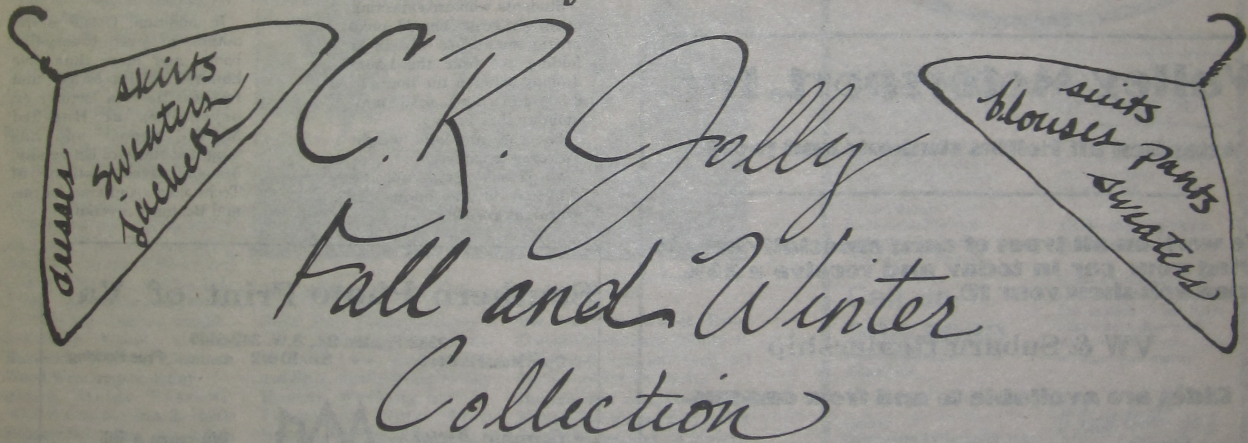 skirts
sweaters
jackets
dresses
C. R. Jolly
Fall and Winter
Collection
suits
blouses pants
sweaters